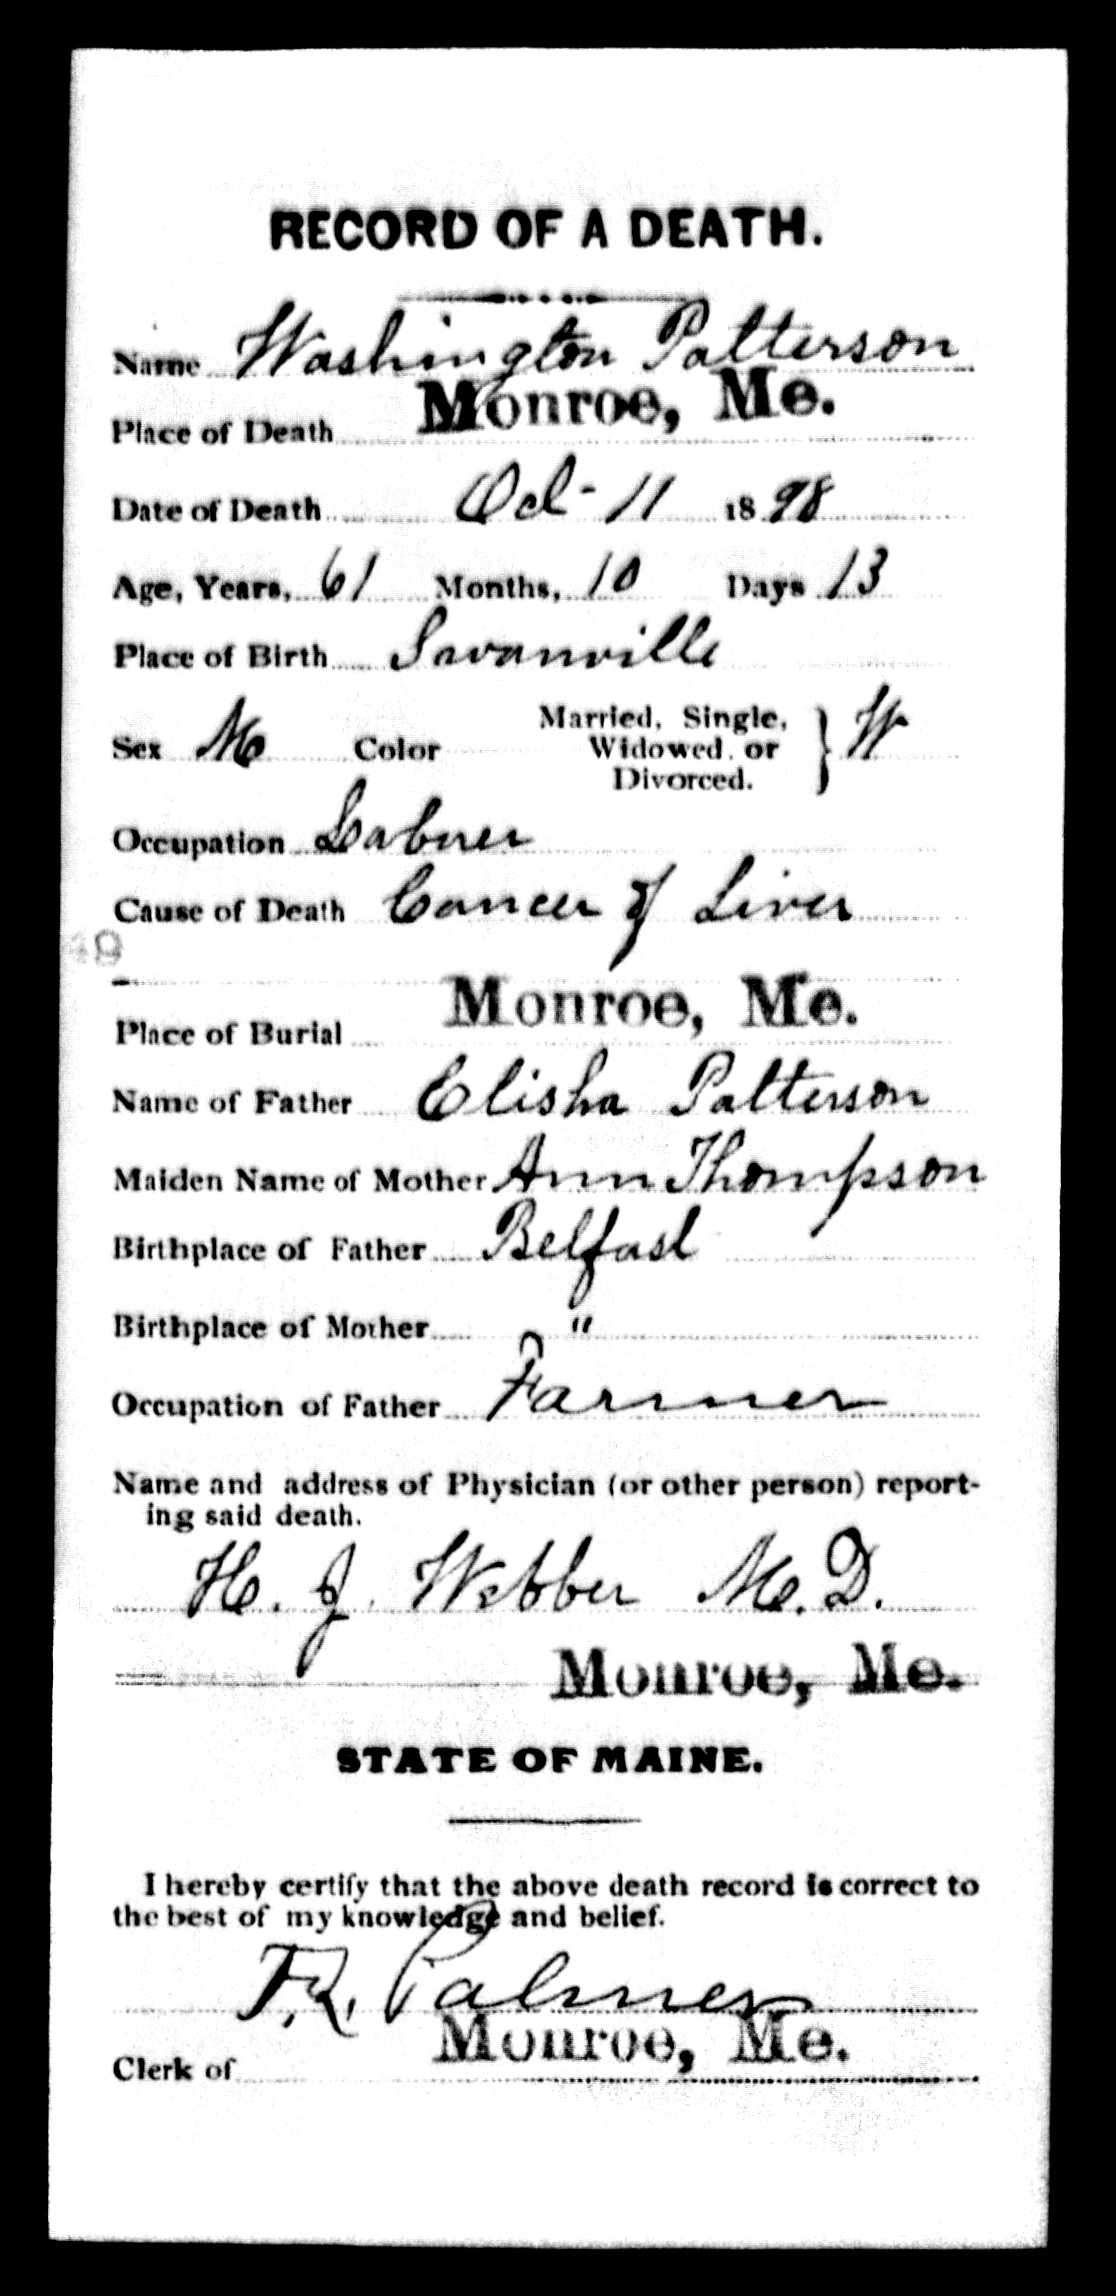 RECORD OF A DEATH.
Name Washington Patterson
Place of Death Monroe, Me.
Date of Death Oct - 11 1898
Age, Years, 61 Months, 10 Days 13
Place of Birth Swanville
Sex M Color Married, Single, Widowed, or Divorced. } W
Occupation Laborer
Cause of Death Cancer of Liver
Place of Burial Monroe, Me.
Name of Father Elisha Patterson
Maiden Name of Mother Ann Thompson
Birthplace of Father Belfast
Birthplace of Mother "
Occupation of Father Farmer
Name and address of Physician (or other person) report-
ing said death.
H. J. Webber M.D.
Monroe, Me.
STATE OF MAINE.
I hereby certify that the above death record is correct to
the best of my knowledge and belief.
F.L. Palmer
Clerk of Monroe, Me.